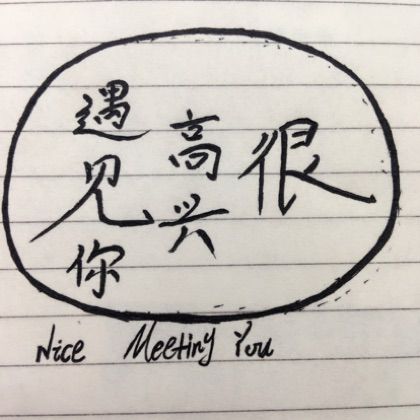 很
高兴
遇见你
Nice Meeting You